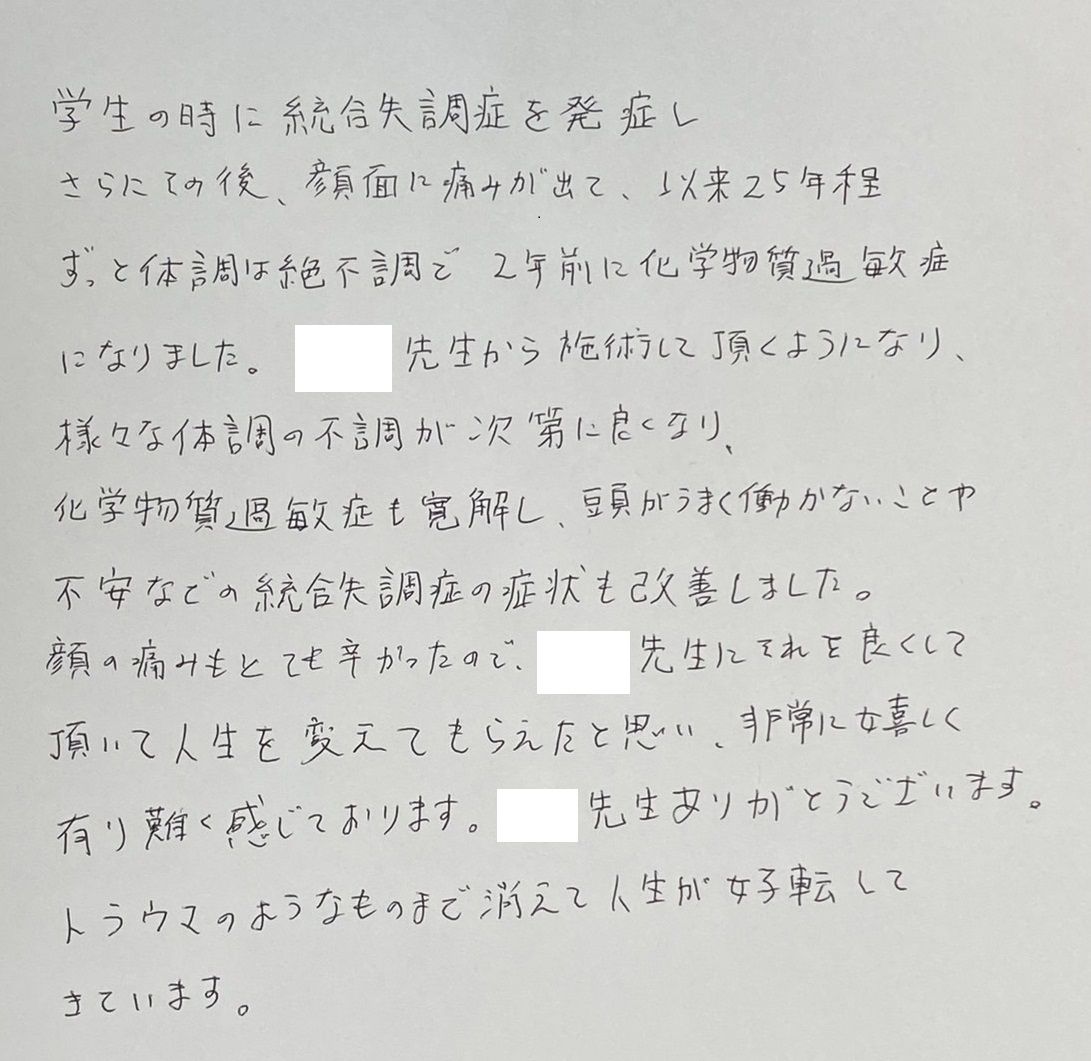 学生の時に統合失調症を発症し
さらにその後、顔面に痛みが出て、以来25年程
ずっと体調は絶不調で 2年前に化学物質過敏症
になりました。 先生から施術して頂くようになり、
様々な体調の不調が次第に良くなり、
化学物質過敏症も寛解し、頭がうまく働かないことや
不安などの統合失調症の症状も改善しました。
顔の痛みもとても辛かったので、 先生にそれを良くして
頂いて人生を変えてもらえたと思い、非常に嬉しく
有り難く感じております。 先生ありがとうございます。
トラウマのようなものまで消えて人生が好転して
きています。